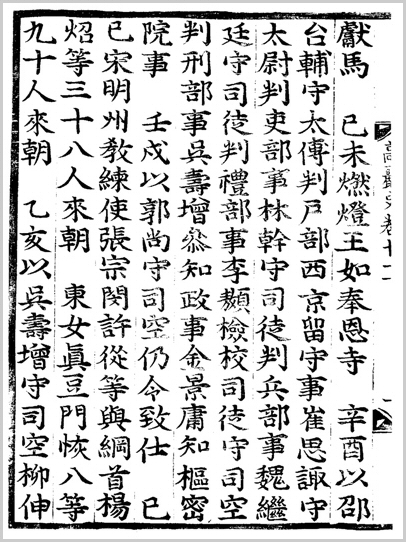 高麗史卷十二
獻馬 已未燃燈王如奉恩寺 辛酉以邵
台輔守太傳判戶部西京留守事崔思諏守
太尉判吏部事林幹守司徒判兵部事魏繼
廷守司徒判禮部事李䫨檢校司徒守司空
判刑部事吳壽增叅知政事金景庸知樞密
院事 壬戌以郭尚守司空仍令致仕 已
巳宋明州教練使張宗閔許從等與綱首楊
炤等三十八人來朝 東女眞豆門恢八等
九十人來朝 乙亥以吳壽增守司空柳伸